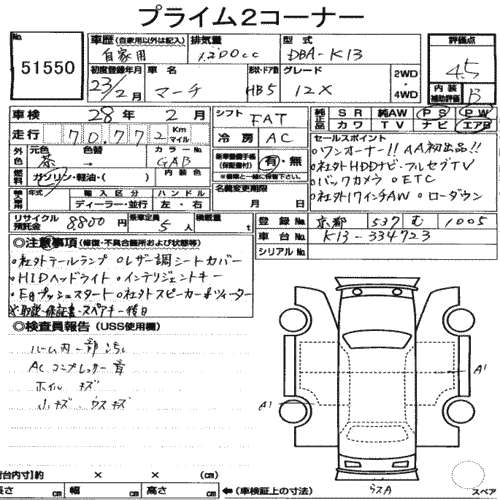 プライム2コーナー
No. 51550
車歴 (自家用以外は記入) 自家用
排気量 1,200cc
型式 DBA-K13
評価点 4.5
初度登録年月 23/2
車名 マーチ
形状・ドア数 HB5
グレード 12X
2WD 4WD
内装補助評価 B
車検 28年 2月
シフト FAT
純正品 SR 純AW PS PW
カワ TV ナビ エアB
走行 70,772 Km マイル
冷房 AC
セールスポイント
外色 元色 茶 色替 → カラーNo. GAB
新車整備手帳(保証書) 有・無
※備考に保管して下さい
○ワンオーナー!! AA初出品!!
○社外HDDナビ・フルセグTV
燃料 ガソリン・軽油・( ) 内装色
○バックカメラ ○ETC
年式 輸入区分 ハンドル
名義変更期限
○社外17インチAW ○ローダウン
ディーラー・並行 左・右
月 日
リサイクル預託金 8800円 乗車定員 5人 積載量 t
登録 No. 京都 537 む 1005
車台 No. K13-334723
シリアル No.
◎注意事項 (修復・不具合箇所および状態等)
○社外テールランプ ○レザー調シートカバー
○HIDヘッドライト ○インテリジェントキー
○Egプッシュスタート ○社外スピーカー&ツィーター
※取説・保証書・スペアキー後日
◎検査員報告 (USS使用欄)
ルーム内一部汚れ
ACコンプレッサー音
ホイルキズ
小キズ・ウスキズ
A1 A1
荷台内寸) 約 × × (cm)
長さ cm 幅 cm 高さ cm ←(車検証上の寸法)
スペア